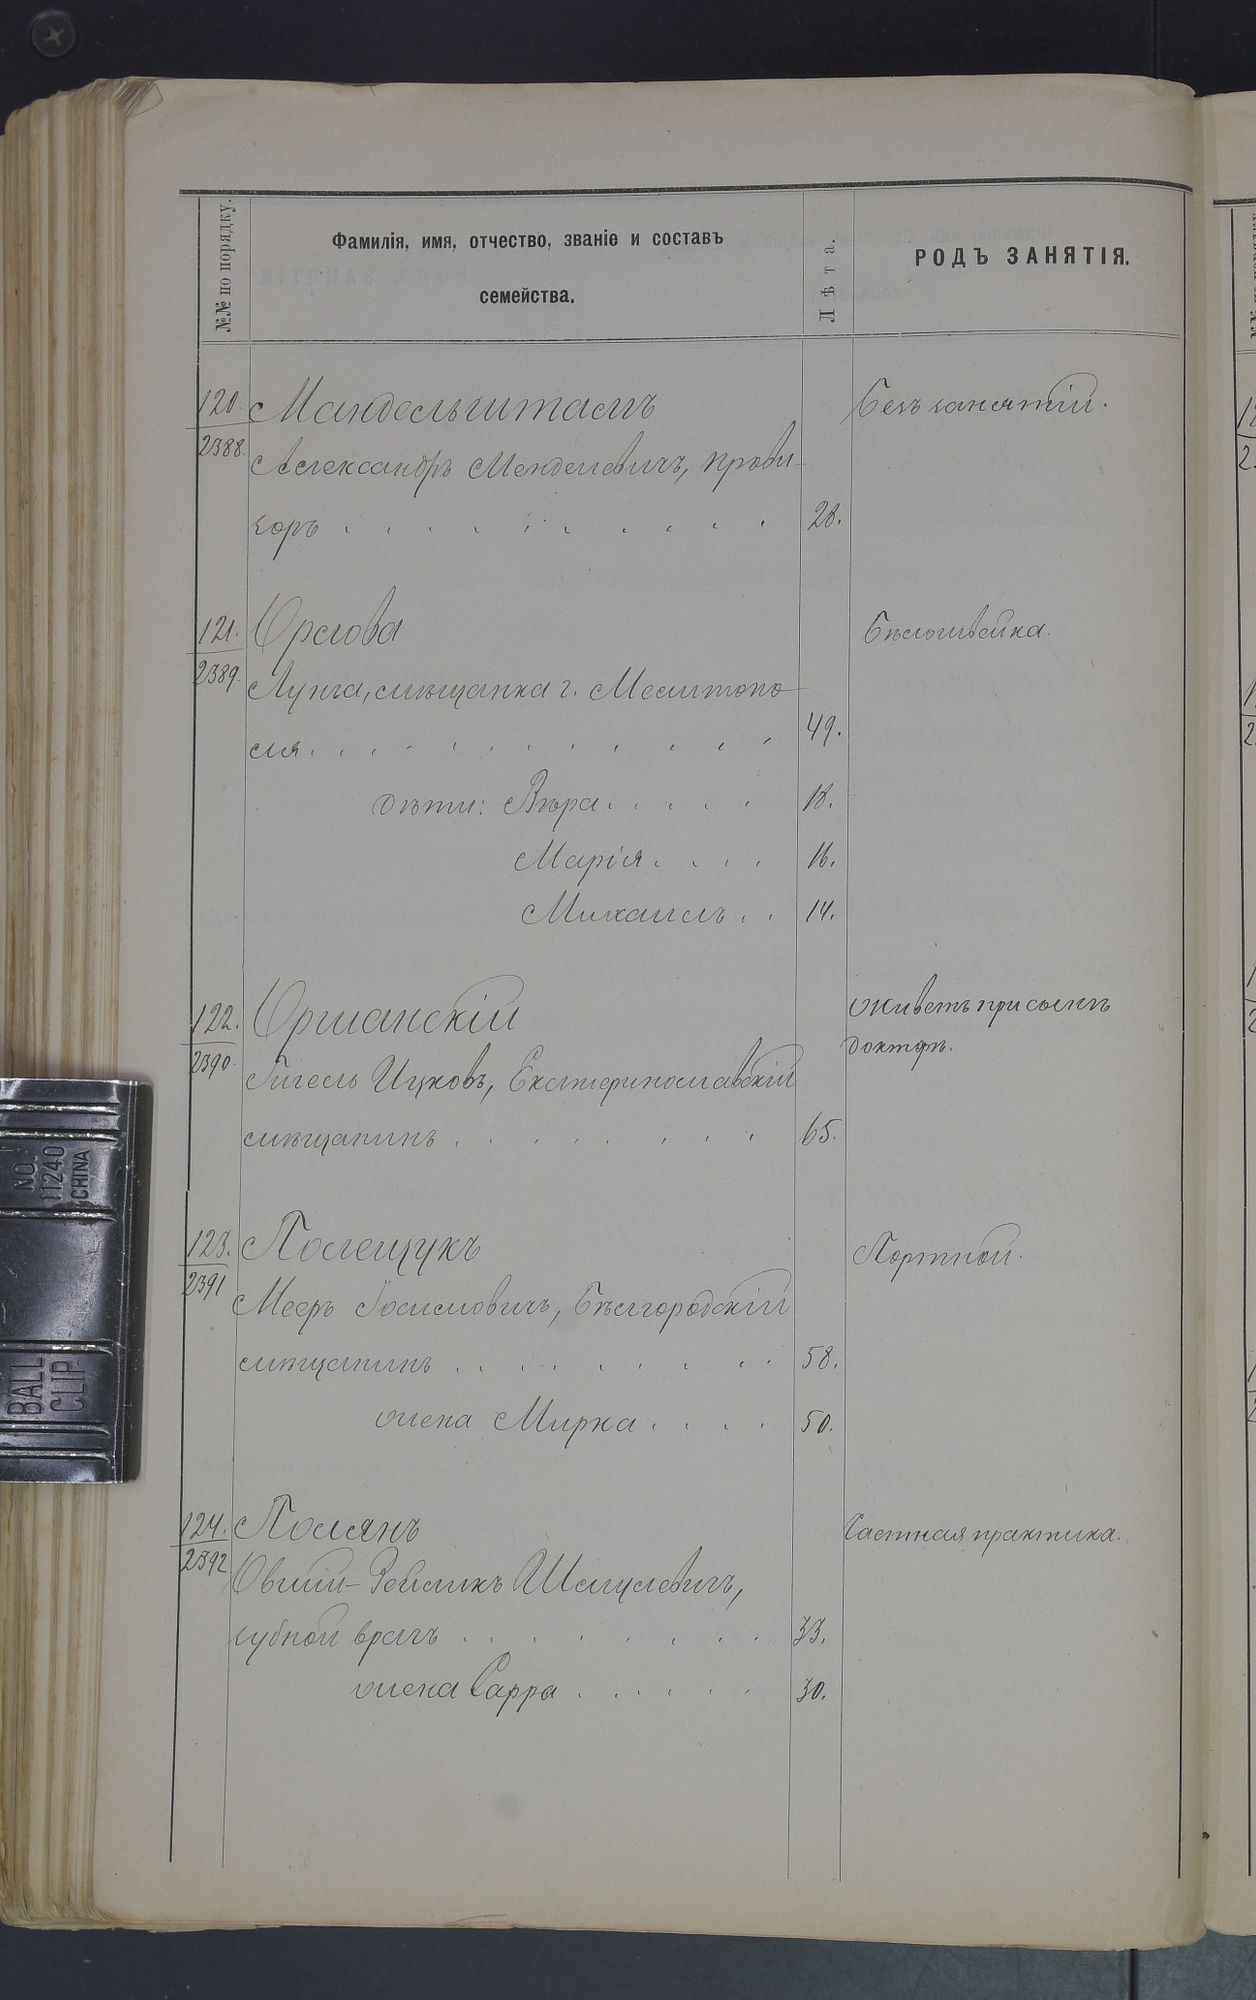 №№ по порядку.
Фамилія, имя, отчество, званіе и составъ
семейства.
Лѣта.
РОДЪ ЗАНЯТІЯ.
120.
2388.
Мандельштамъ
Безъ занятій.
Александръ Менделевичъ, прови-
зоръ . . . . . . . . . 28.
121.
2389.
Орлова
Бѣлошвейка.
мѣщанка г. Мелитопо-
ля . . . . . . . . . . . 49.
дѣти: Вѣра . . . . . 18.
Марія . . . . 16.
Михаилъ . . 14.
122.
2390.
Оршанскій
Живетъ при сынѣ
докторѣ.
Гигель Ицковъ, Екатеринославскій
мѣщанинъ . . . . . . . 65.
123.
2391
Полещукъ
Портной.
Мееръ Іосиловичъ, Бѣлгородскій
мѣщанинъ . . . . . . . . 58.
жена Мирка . . . . 50.
124.
2392
Полянъ
Частная практика.
Овшій-Зейликъ
зубной врачъ . . . . . . . . 33.
жена Сарра . . . . . . 30.
NO.
11240
CHINA
BALL
CLIP